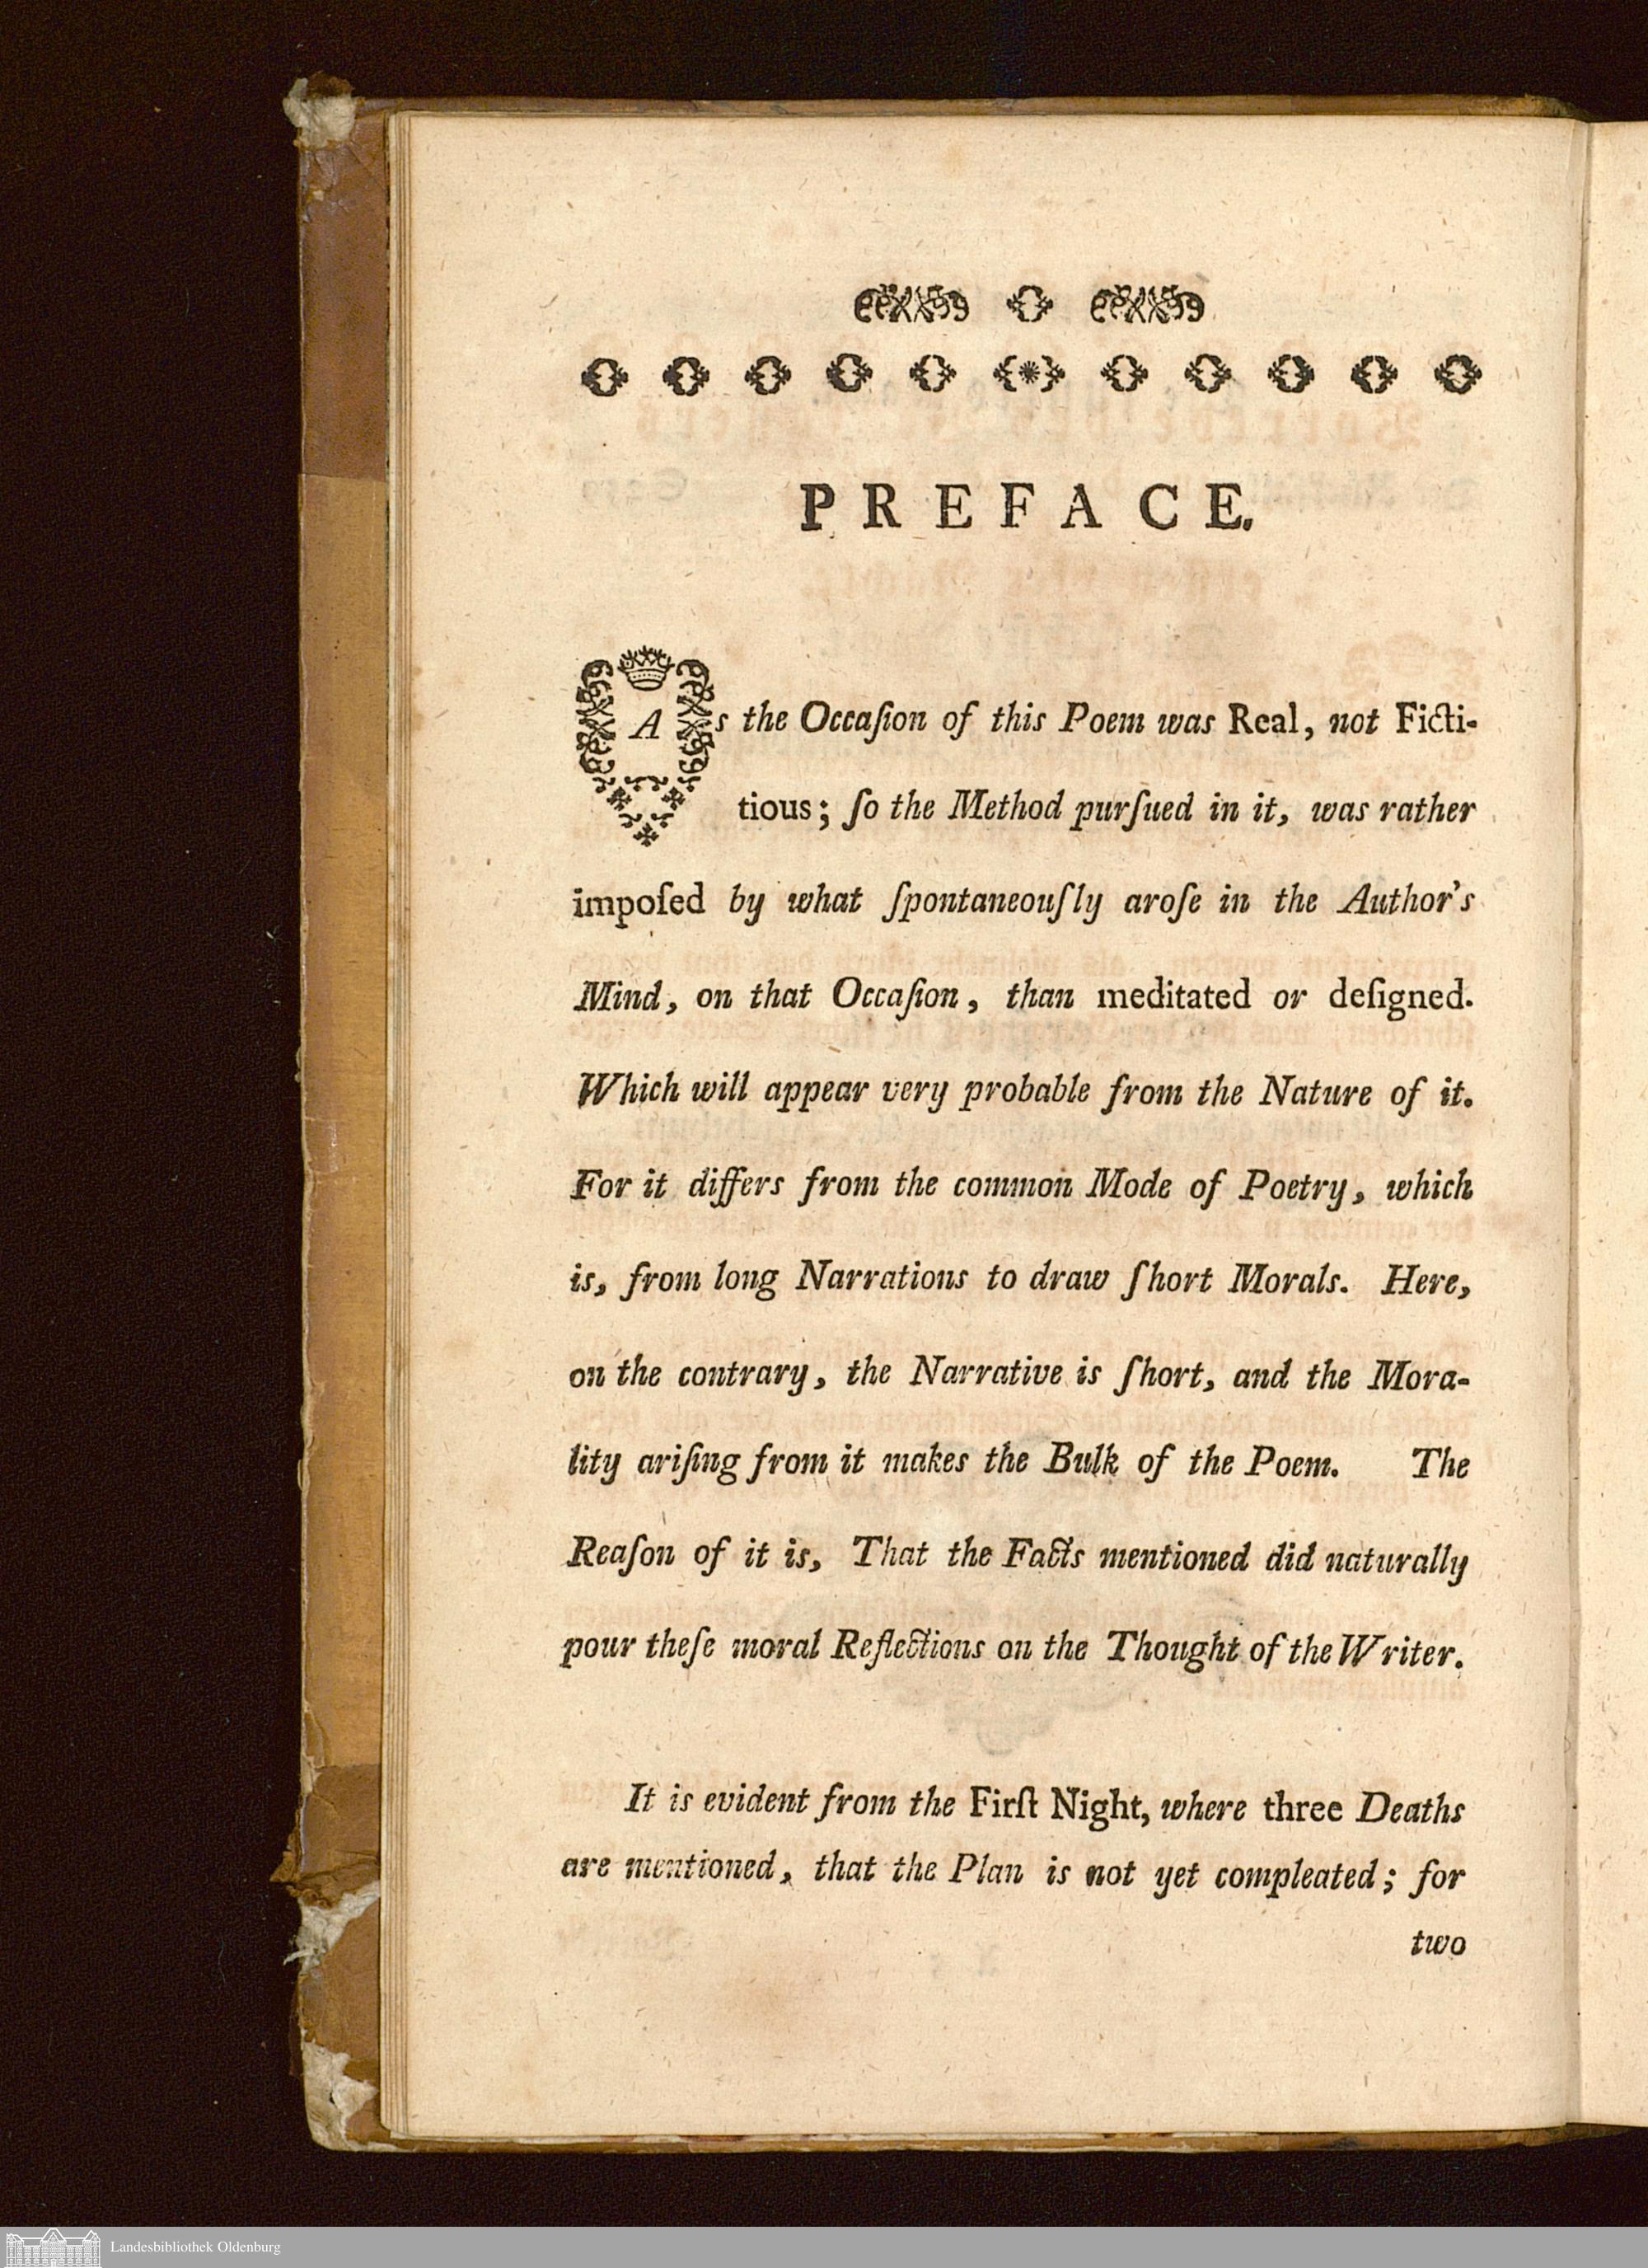 PREFACE.
As the Occaſion of this Poem was Real, not Ficti-
tious; ſo the Method purſued in it, was rather
impoſed by what ſpontaneouſly aroſe in the Author's
Mind, on that Occaſion, than meditated or deſigned.
Which will appear very probable from the Nature of it.
For it differs from the common Mode of Poetry, which
is, from long Narrations to draw ſhort Morals. Here,
on the contrary, the Narrative is ſhort, and the Mora-
lity ariſing from it makes the Bulk of the Poem. The
Reaſon of it is, That the Facts mentioned did naturally
pour theſe moral Reflections on the Thought of the Writer.
It is evident from the Firſt Night, where three Deaths
are mentioned, that the Plan is not yet compleated; for
two
Landesbibliothek Oldenburg